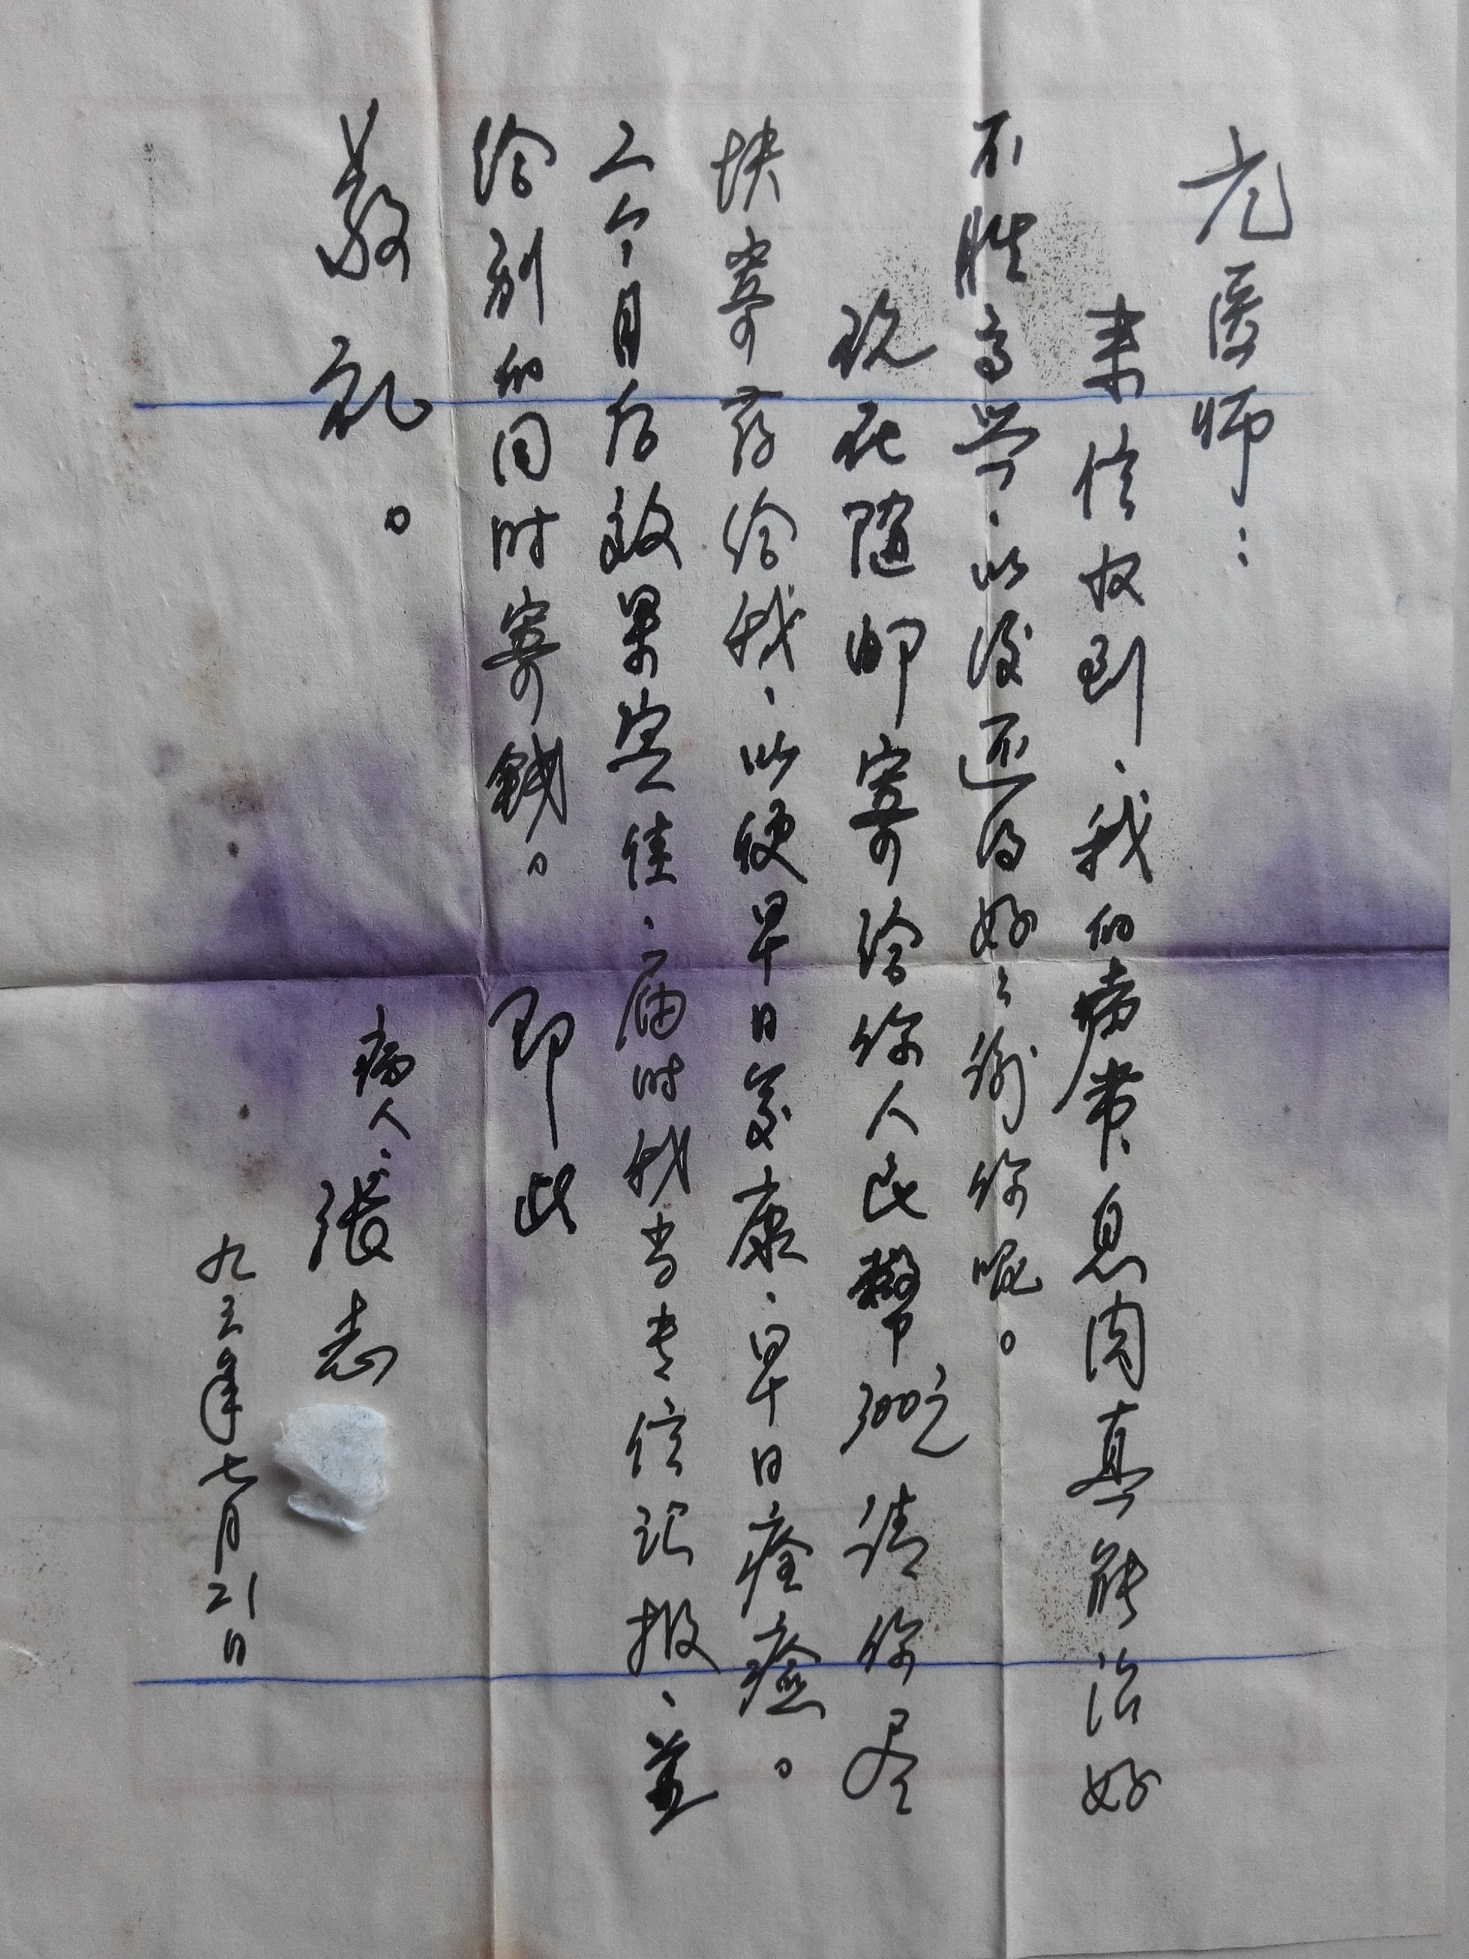 尤医师：
来信收到、我的病带息肉真能治好
不胜高兴、以后还得好好谢你呢。
现在随邮寄给你人民币300元请你尽
快寄药给我、以便早日安康、早日痊癒。
二个月后效果岂佳、届时我当专信汇报、並
给别的同时寄钱。即此
敬礼。
病人、张志
九三年七月21日